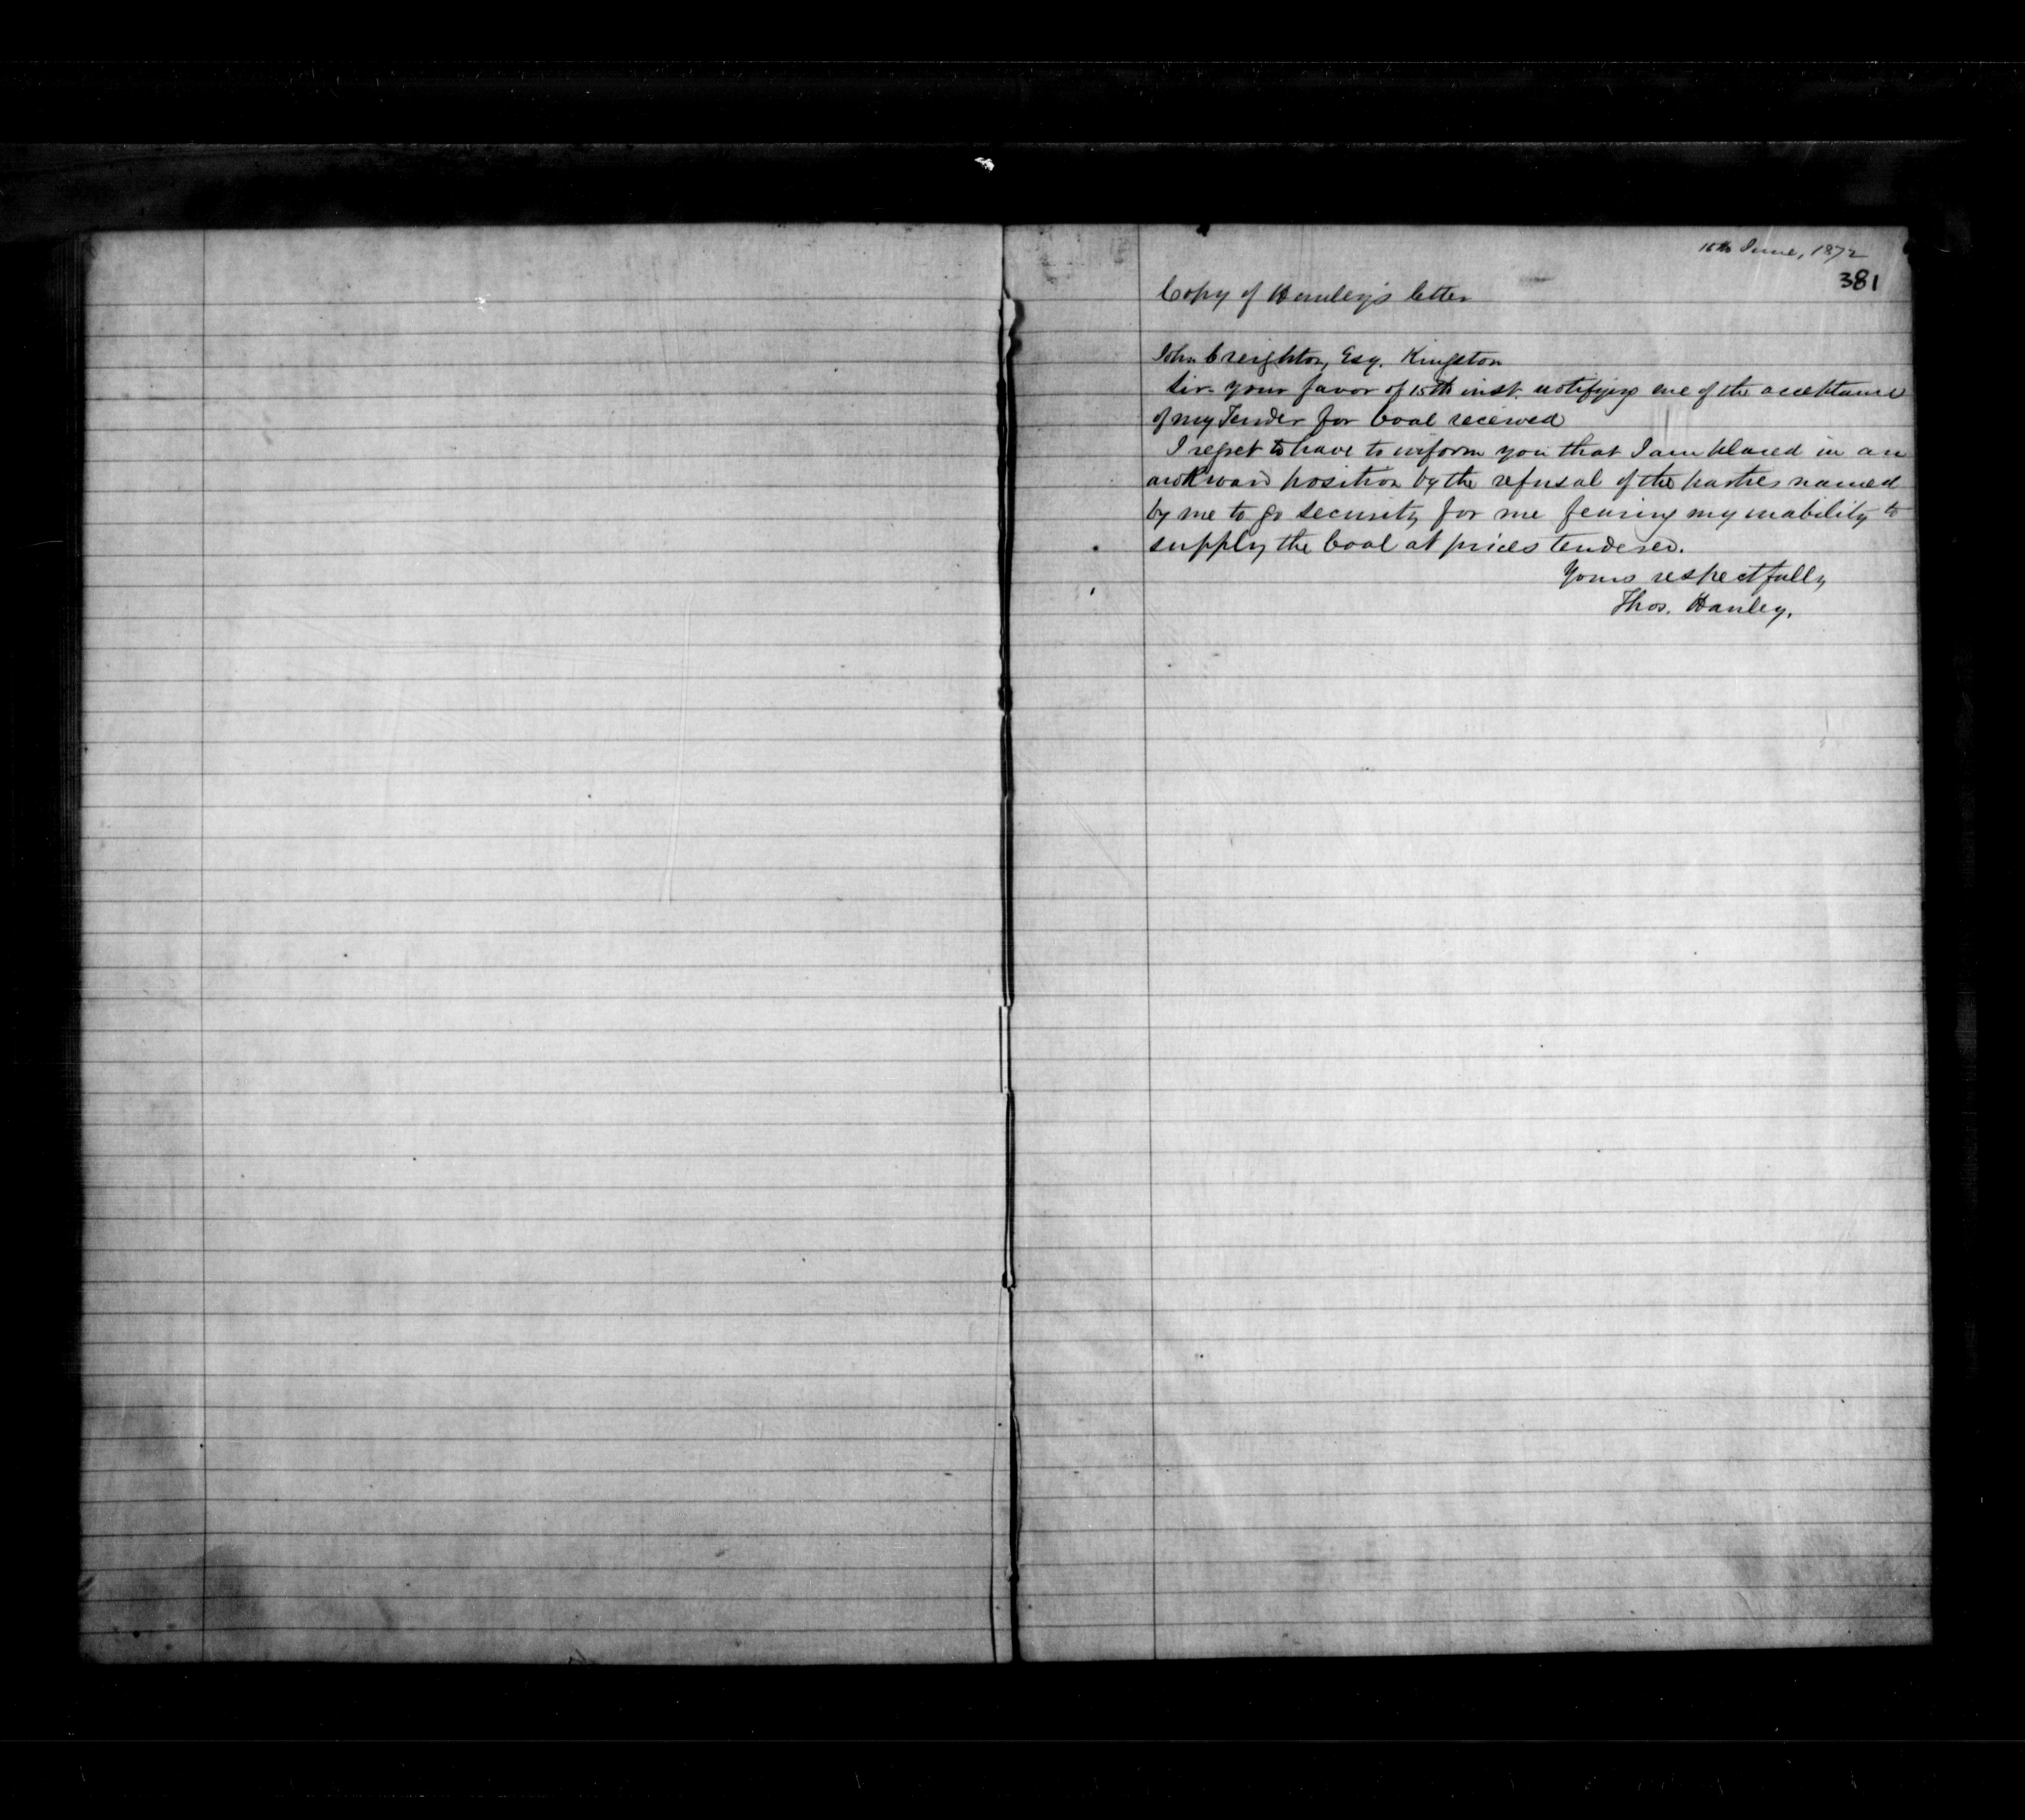 16th June, 1872
381
Copy of Hanley's letter
John Creighton, Esq. Kingston
Sir - your favor of 15th inst. notifying me of the acceptance
of my Tender for Coal received
I regret to have to inform you that I am placed in an
awkward position by the refusal of the parties named
by me to go security for me fearing my inability to
supply the Coal at prices tendered.
Yours respectfully
Thos. Hanley.